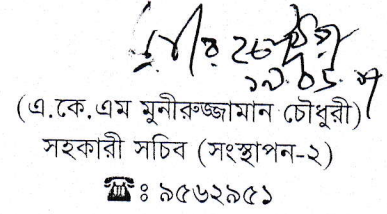 (এ.কে.এম মুনীরুজ্জামান চৌধুরী)
সহকারী সচিব (সংস্থাপন-২)
☎ঃ ৯৫৬২৯৫১